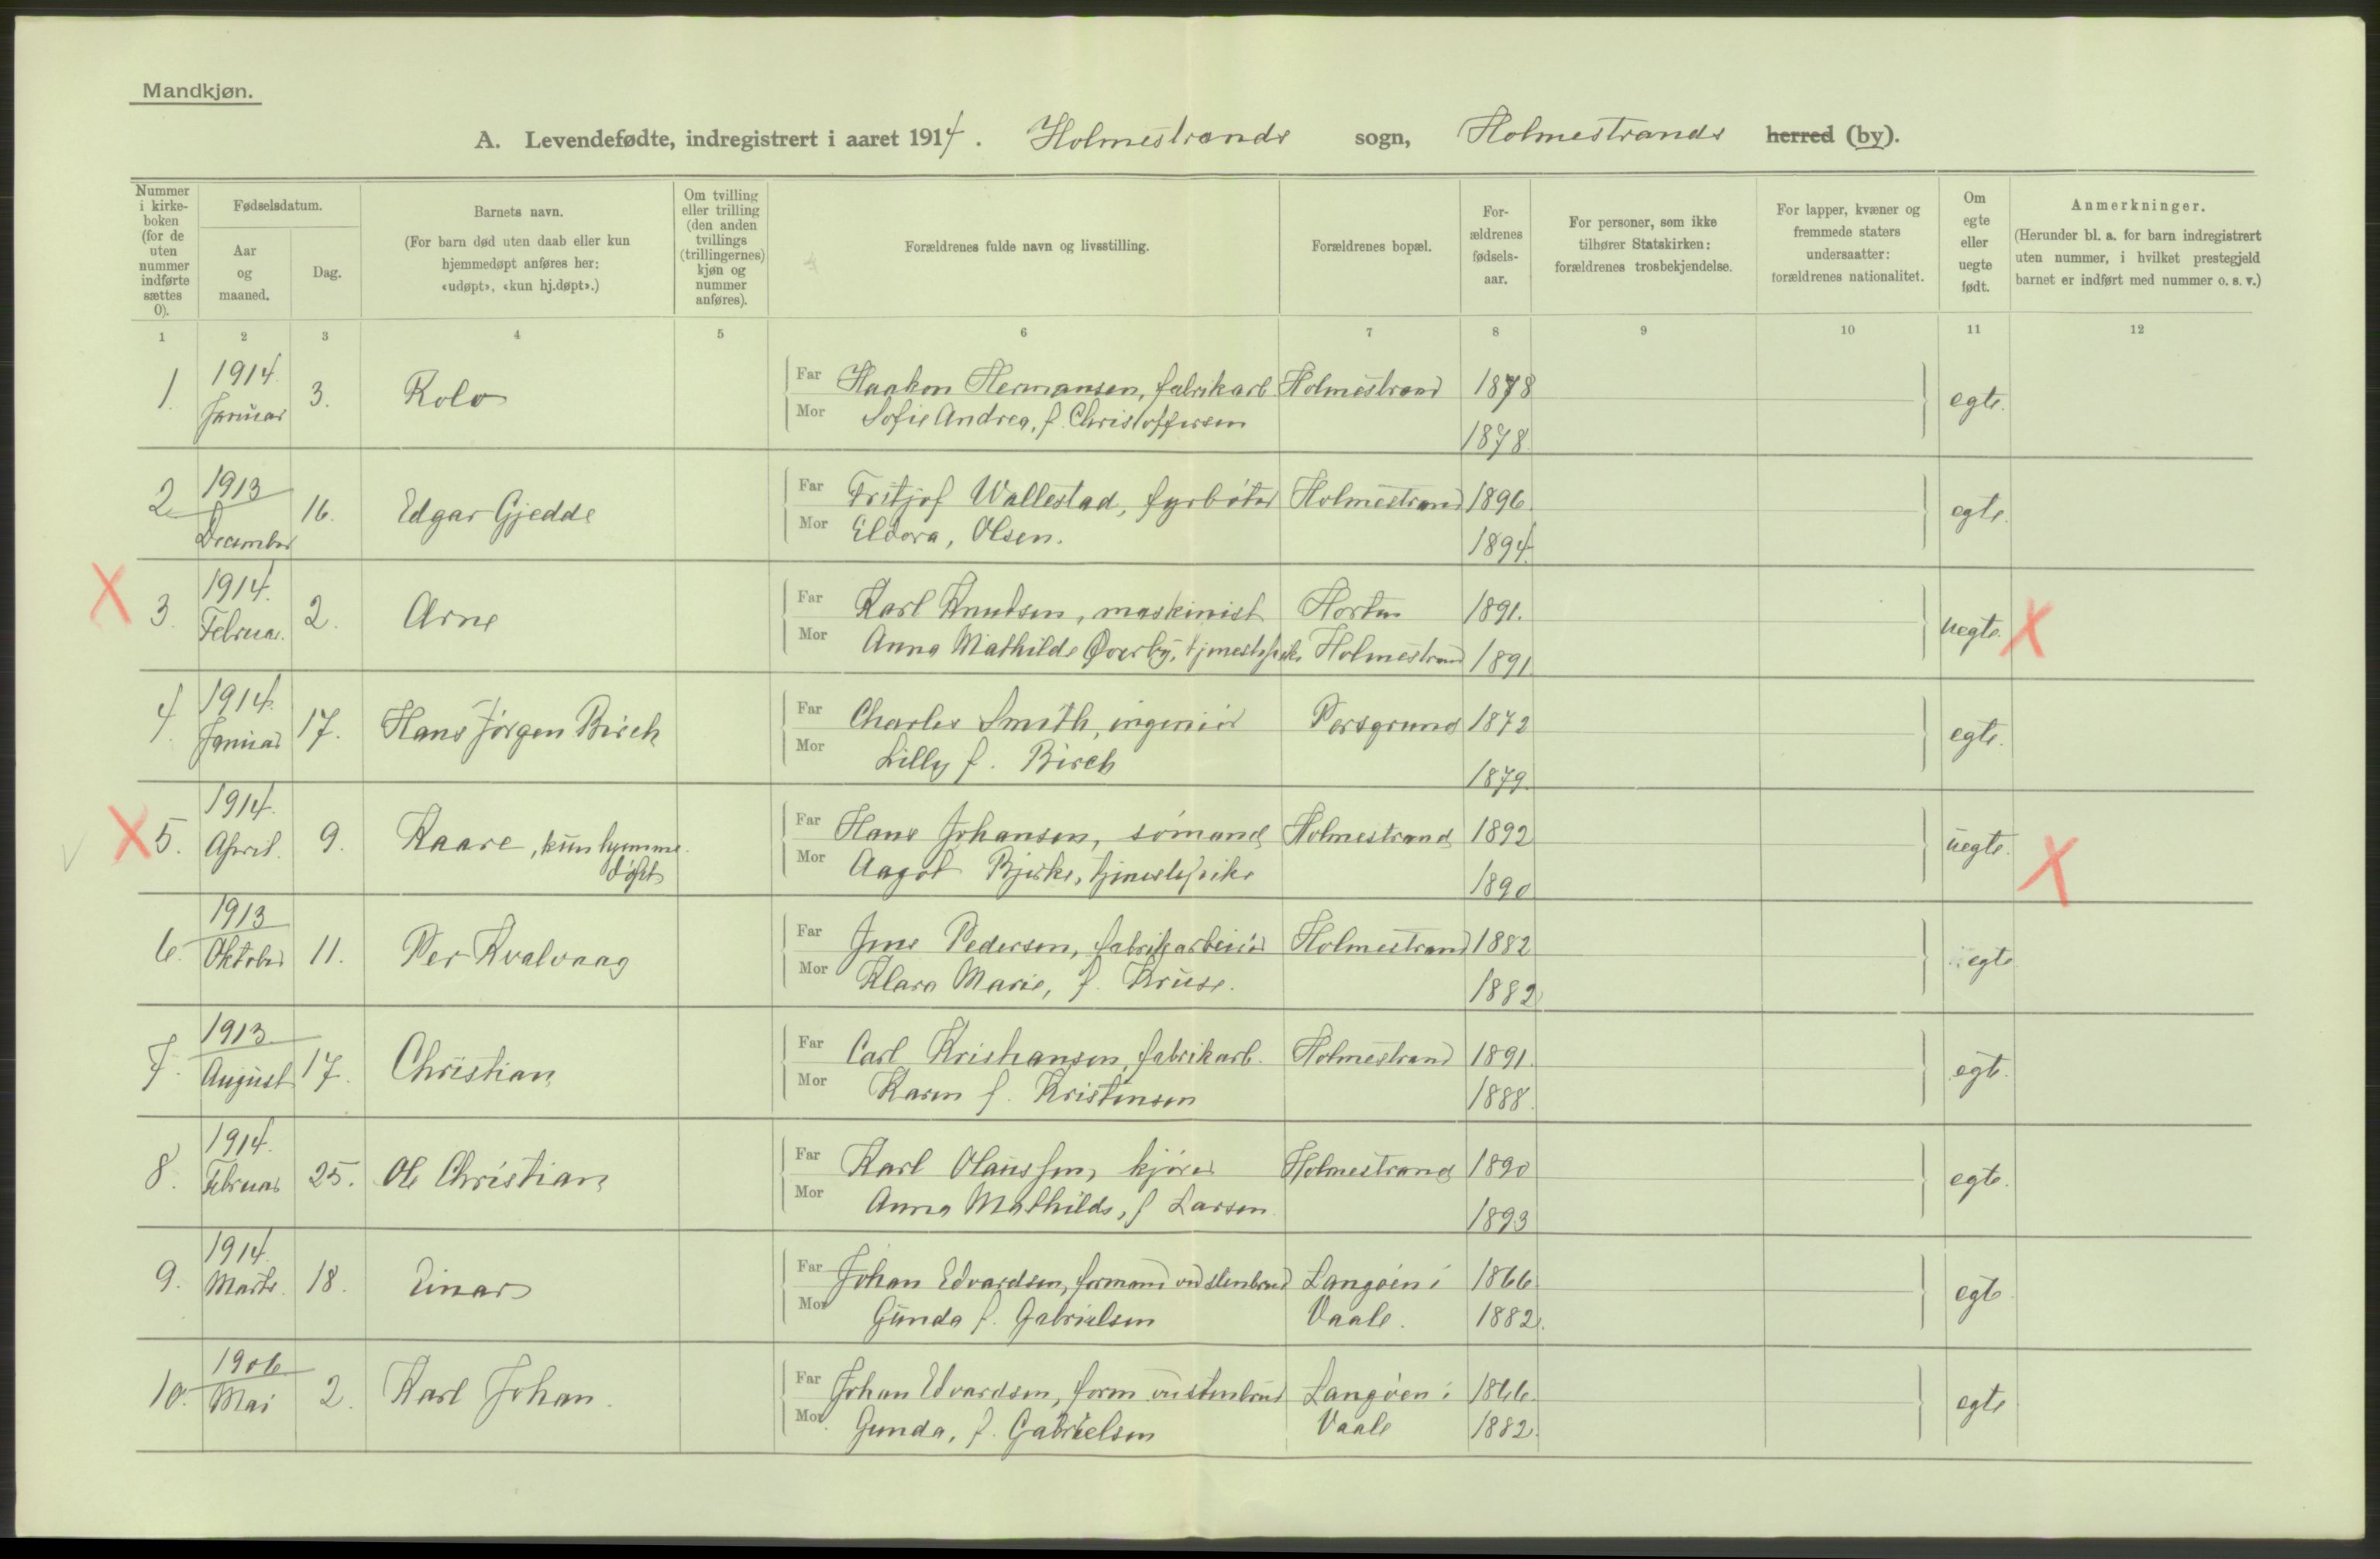 Mandkjøn.
A. Levendefødte, indregistrert i aaret 1914. Holmestrands sogn, Holmestrands herred (by).
Nummer i kirke-boken (for de uten nummer indførte sættes 0).
Fødselsdatum.
Aar og maaned.
Dag.
Barnets navn.
(For barn død uten daab eller kun hjemmedøpt anføres her: «udøpt», «kun hj.døpt».)
Om tvilling eller trilling (den anden tvillings (trillingernes) kjøn og nummer anføres).
Forældrenes fulde navn og livsstilling.
Forældrenes bopæl.
For-ældrenes fødsels-aar.
For personer, som ikke tilhører Statskirken: forældrenes trosbekjendelse.
For lapper, kvæner og fremmede staters undersaatter: forældrenes nationalitet.
Om egte eller uegte født.
Anmerkninger.
(Herunder bl. a. for barn indregistrert uten nummer, i hvilket prestegjeld barnet er indført med nummer o. s. v.)
1 2 3 4 5 6 7 8 9 10 11 12
1. 1914. Januar 3. Rolv Far Haakon Hermansen, fabrikarb Holmestrand 1878 egte.
Mor Sofie Andrea, f. Christoffersen 1878.
2 1913 December 16. Edgar Gjedde Far Fritjof Wallestad, fyrbøter Holmestrand 1896. egte.
Mor Eldora, Olsen. 1894.
X 3. 1914. Februar. 2. Arne Far Karl Knudsen, maskinist Horten 1891. uegte. X
Mor Anna Mathilde Øverby, tjenestepike Holmestrand 1891.
4. 1914. Januar 17. Hans Jørgen Birch Far Charles Smith, ingeniør Porsgrund 1872 egte.
Mor Lilly f. Birch 1879.
X 5. 1914. April. 9. Kaare, kun hjemme. Far Hans Johansen, sømand Holmestrand 1892 uegte. X
døpt Mor Aagot Bjerke, tjenestepike 1890
6. 1913 Oktober 11. Per Kvalvaag Far Jens Pedersen, fabrikarbeider Holmestrand 1882 egte
Mor Klara Marie, f. Kruse. 1882
7. 1913 August 17. Christian Far Carl Kristiansen, fabrikarb. Holmestrand 1891. egte.
Mor Karen f. Kristensen 1888.
8. 1914. Februar 25. Ole Christian Far Karl Olaussen, kjører Holmestrand 1890 egte.
Mor Anna Mathilde, f Larsen 1893
9. 1914. Marts. 18. Einar Far Johan Edvardsen, formand ved stenbrud Langøen i 1866. egte
Mor Gunda f. Gabrielsen Vaale. 1882.
10. 1906. Mai 2. Karl Johan. Far Johan Edvardsen, form. ved stenbrud Langøen i 1866. egte
Mor Gunda, f. Gabrielsen Vaale 1882.